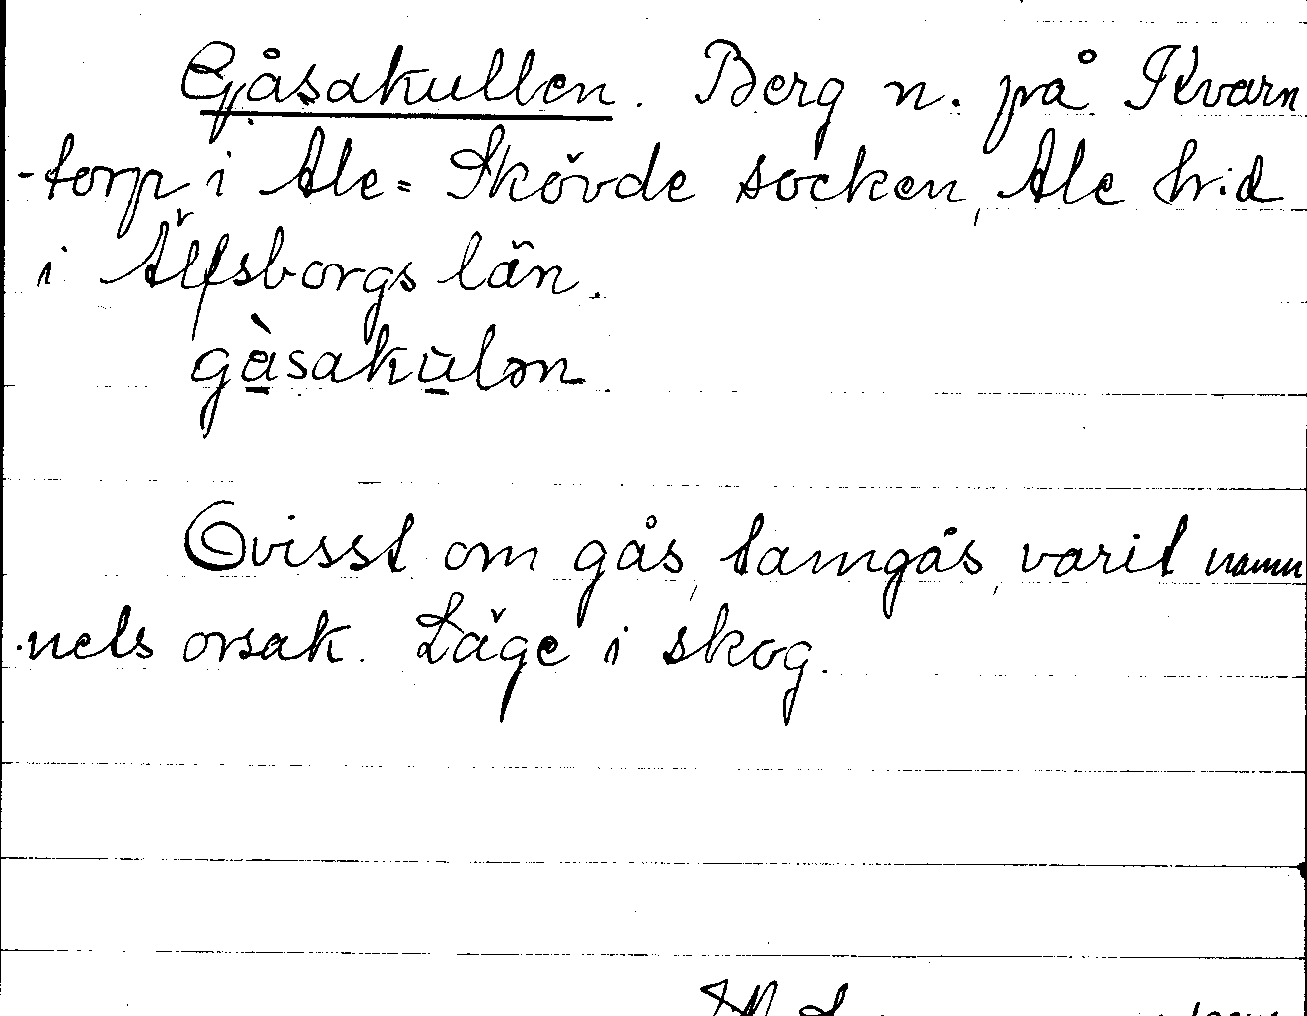 Gåsakullen. Berg n. på Kvarn
-torp i Ale=Skövde socken, Ale h:d
i Älfsborgs län.
gàsakùlən
Ovisst om gås, tamgås, varit namn
nets orsak. Läge i skog.